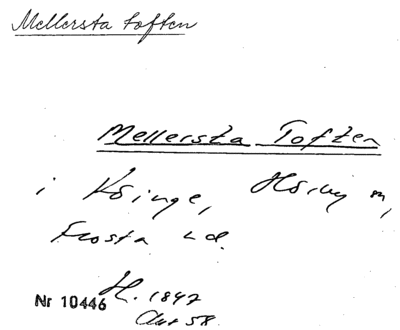 Mellersta toften
Mellersta Toften
i Köinge, Hörby sn,
Frosta hd.
Nr 10446 H. 1847
Akt 58.